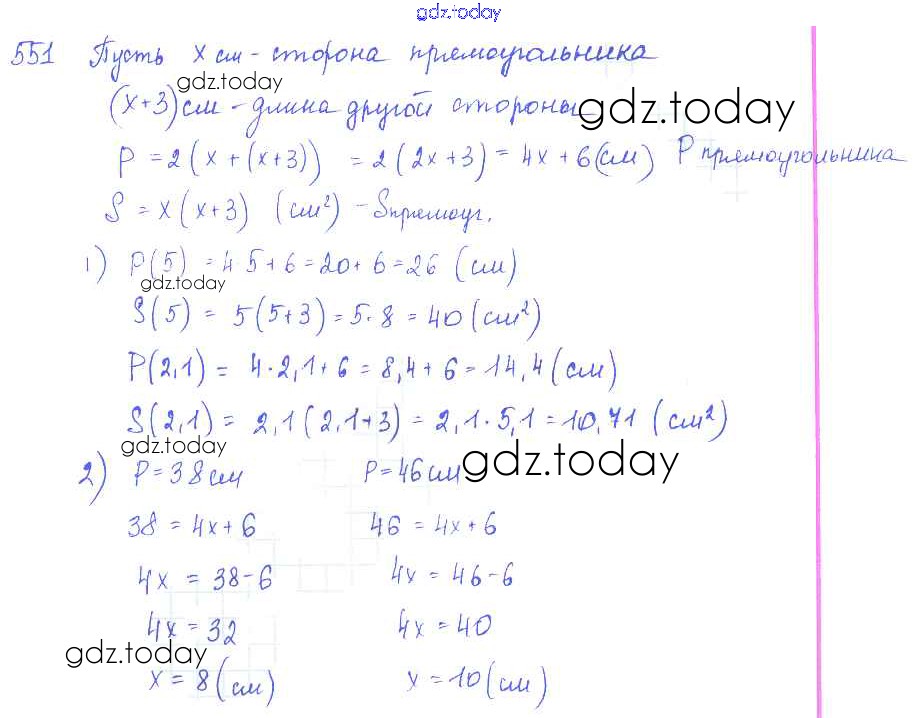 gdz.today
551 Пусть x см - сторона прямоугольника
gdz.today
(x+3) см - длина другой стороны
gdz.today
P = 2(x + (x+3)) = 2(2x+3) = 4x + 6 (см) P прямоугольника
gdz.today
S = x(x+3) (см²) - Sпрямоуг.
1) P(5) = 4 5 + 6 = 20 + 6 = 26 (см)
gdz.today
S(5) = 5(5+3) = 5·8 = 40 (см²)
P(2,1) = 4·2,1 + 6 = 8,4 + 6 = 14,4 (см)
S(2,1) = 2,1(2,1+3) = 2,1·5,1 = 10,71 (см²)
gdz.today
2) P = 38 см P = 46 см
gdz.today
38 = 4x + 6 46 = 4x + 6
4x = 38 - 6 4x = 46 - 6
4x = 32 4x = 40
gdz.today
x = 8 (см) x = 10 (см)